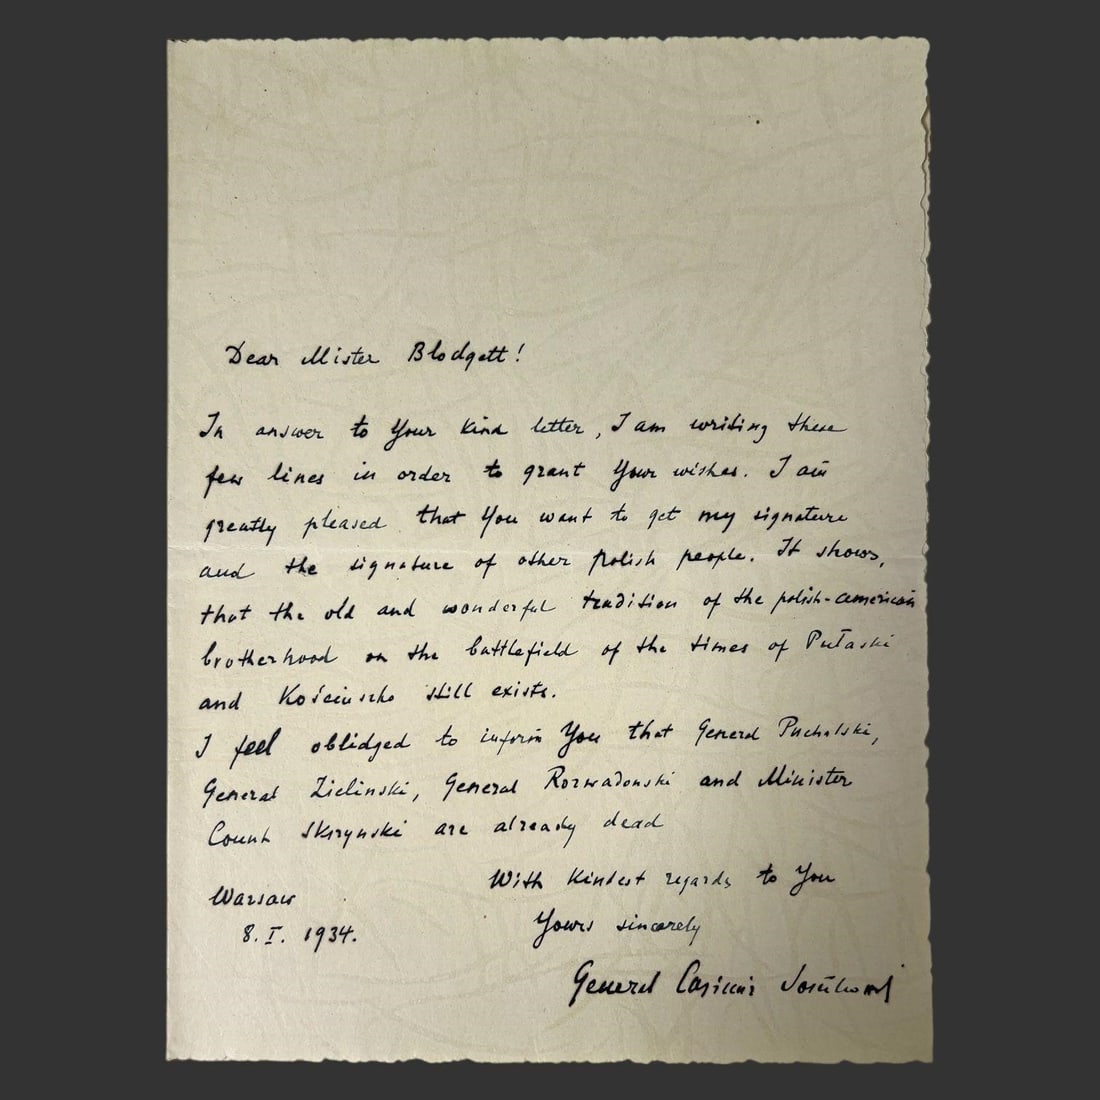 Dear Mister Blodgett!
In answer to Your kind letter, I am writing these
few lines in order to grant Your wishes. I am
greatly pleased that You want to get my signature
and the signature of other polish people. It shows,
that the old and wonderful tradition of the polish-american
brotherhood on the battlefield of the times of Pułaski
and Kościuszko still exists.
I feel oblidged to inform You that General Puchalski,
General Zielinski, General Rozwadowski and Minister
Count Skrzynski are already dead
With kindest regards to You
Warsaw
Yours sincerely
8. I. 1934.
General Casimir